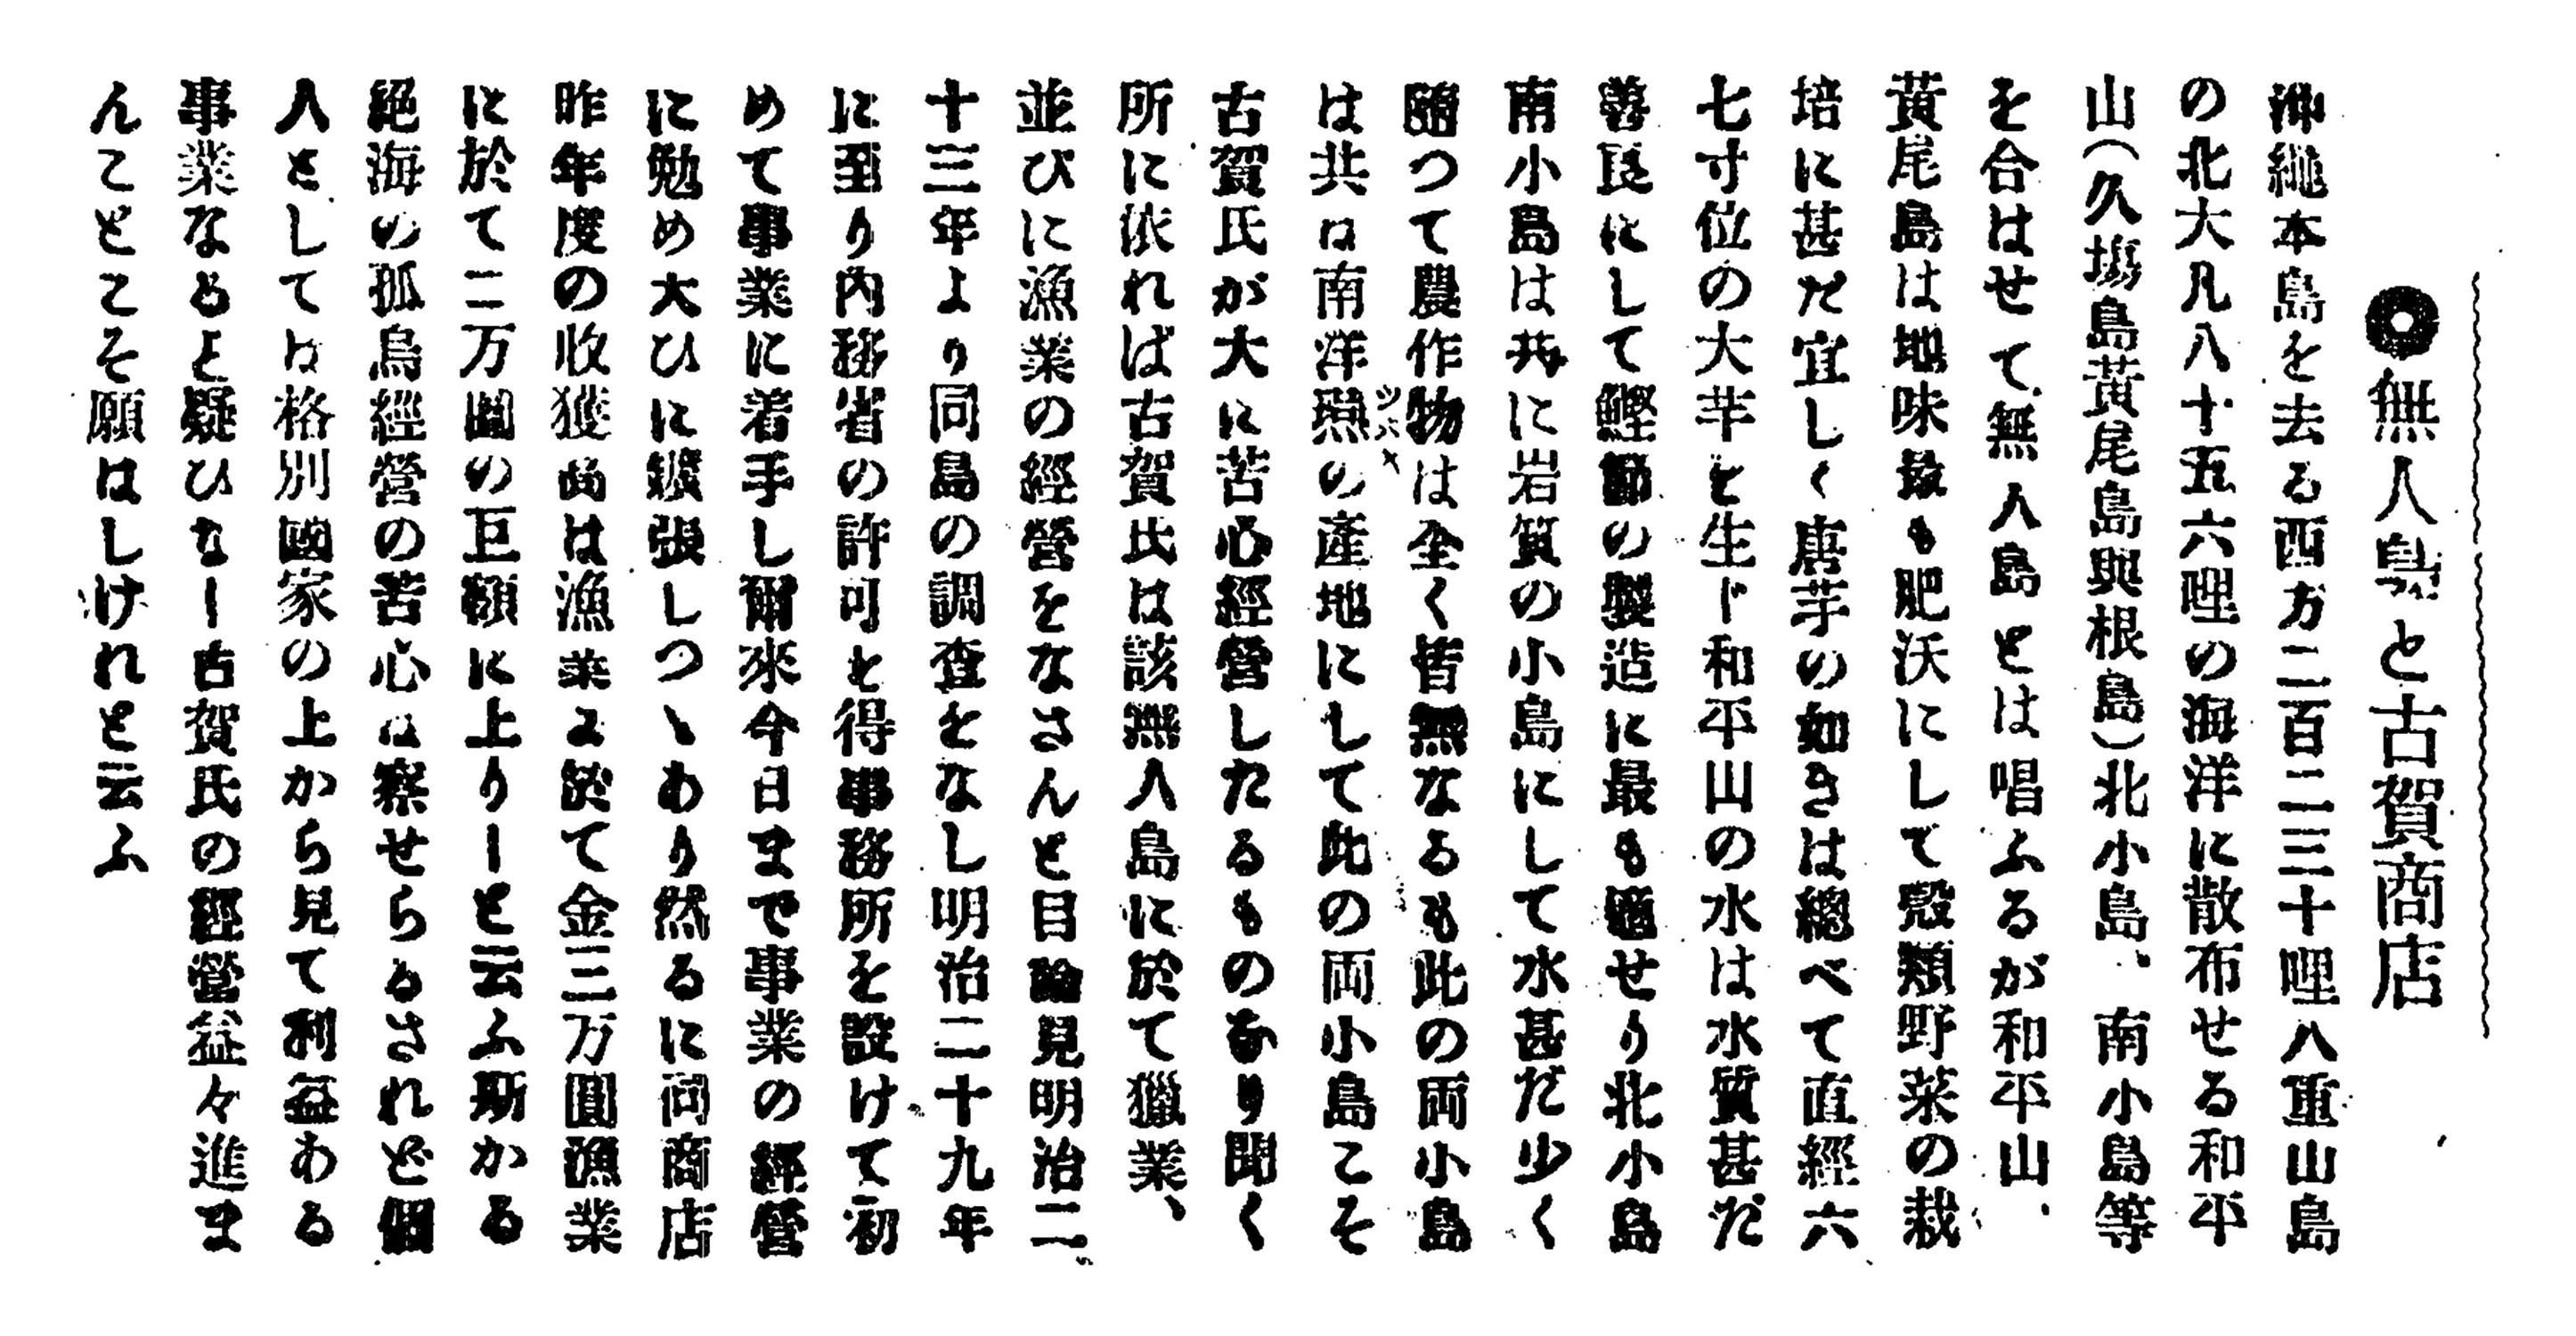 ◉無人島と古賀商店
沖繩本島を去る西方二百二三十哩八重山島
の北大凡八十五六哩の海洋に散布せる和平
山(久塲島黄尾島與根島)北小島、南小島等
を合はせて無人島とは唱ふるが和平山、
黄尾島は地味最も肥沃にして穀類野菜の栽
培に甚だ宜しく唐芋の如きは總べて直經六
七寸位の大芋を生ド和平山の水は水質甚だ
善良にして鰹節の製造に最も適せり北小島
南小島は共に岩質の小島にして水甚だ少く
隨つて農作物は全く皆無なるも此の両小島
は共は南洋燕の產地にして此の両小島こそ
古賀氏が大に苦心經營したるものなり聞く
所に依れば古賀氏は該無人島に於て獵業、
並びに漁業の經營をなさんと目論見明治二
十三年より同島の調査をなし明治二十九年
に至り内務省の許可を得事務所を設けて初
めて事業に着手し爾來今日まで事業の經營
に勉め大ひに擴張しつゝあり然るに同商店
昨年度の收獲高は漁業に於て金三万圓漁業
に於て二万圓の巨額に上りしと云ふ斯かる
絕海の孤島經營の苦心は察せらるされど個
人としては格別國家の上から見て利益ある
事業なると疑ひなし古賀氏の經營益々進ま
んことこそ願はしけれと云ふ